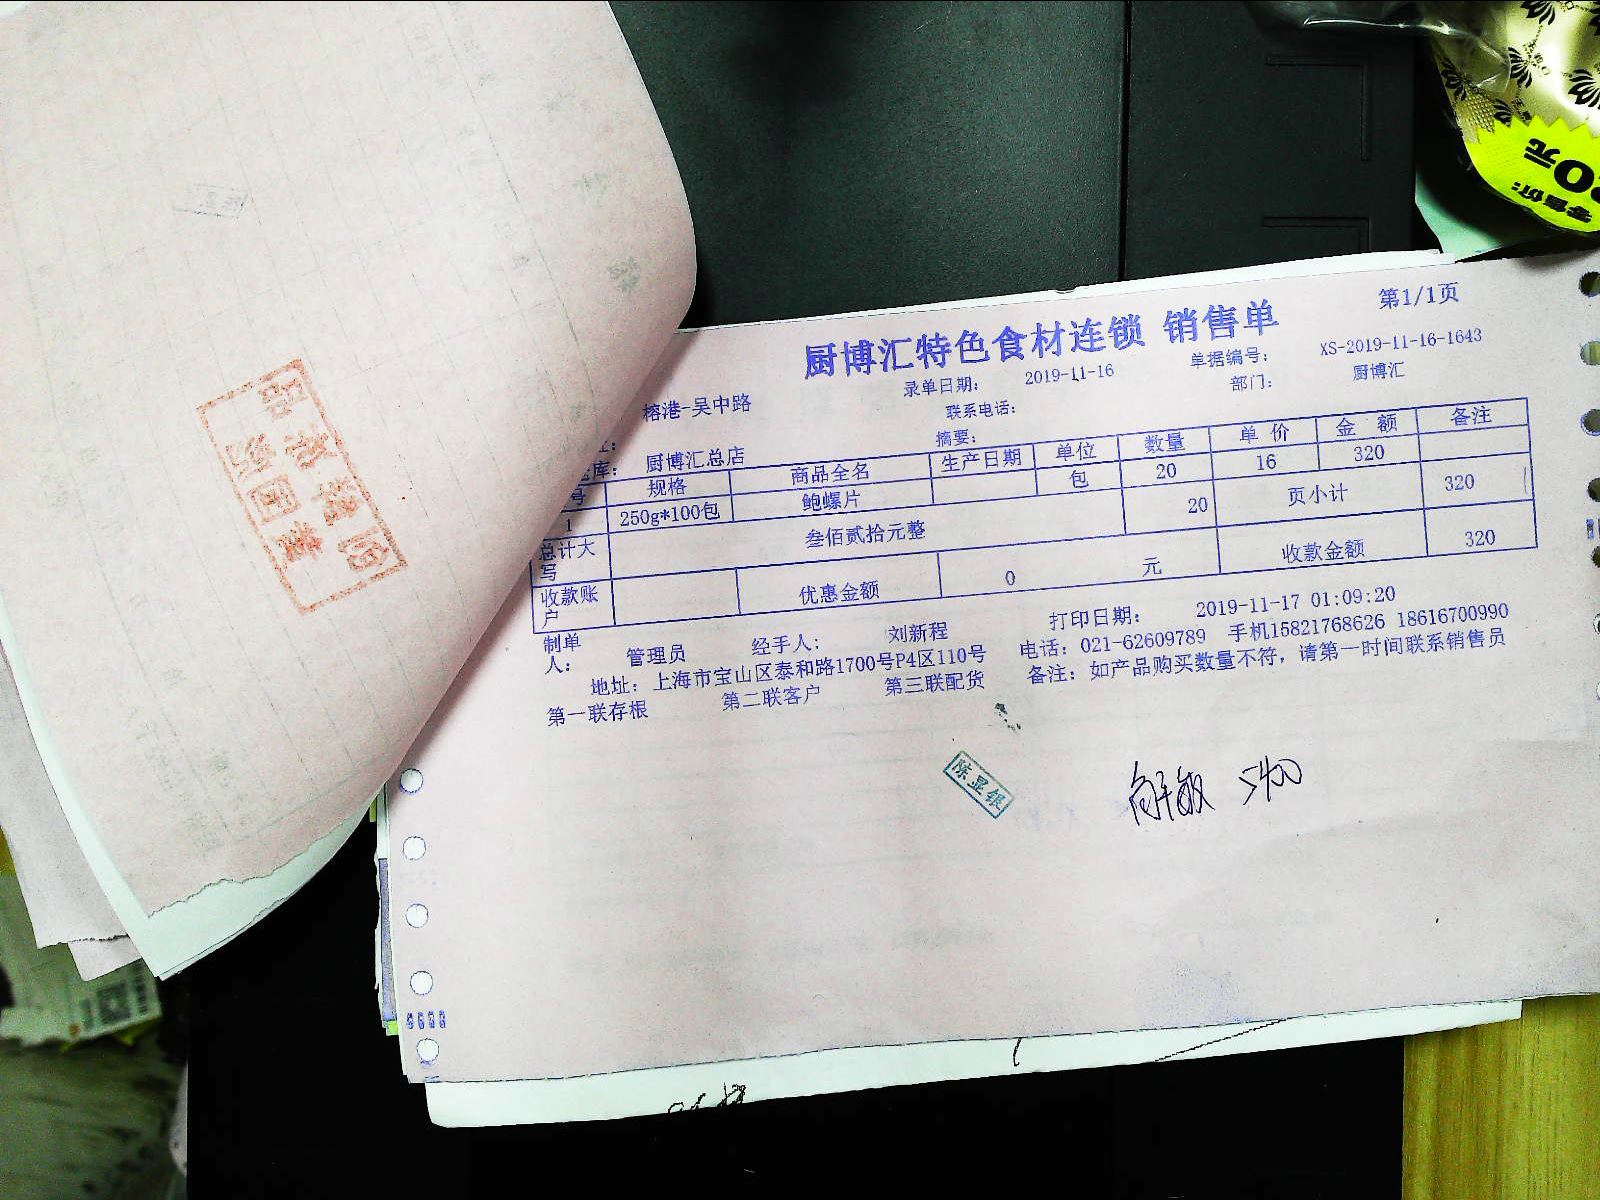 第1/1页
厨博汇特色食材连锁 销售单
录单日期: 2019-11-16 单据编号: XS-2019-11-16-1643
榕港-吴中路 联系电话: 部门: 厨博汇
库: 厨博汇总店 摘要:
号 规格 商品全名 生产日期 单位 数量 单价 金额 备注
1 250g*100包 鲍螺片 包 20 16 320
20 页小计 320
总计大写 叁佰贰拾元整
收款账户 优惠金额 0 元 收款金额 320
制单人: 管理员 经手人: 刘新程 打印日期: 2019-11-17 01:09:20
地址: 上海市宝山区泰和路1700号P4区110号 电话: 021-62609789 手机15821768626 18616700990
第一联存根 第二联客户 第三联配货 备注: 如产品购买数量不符, 请第一时间联系销售员
陈显银
零售价:
0元